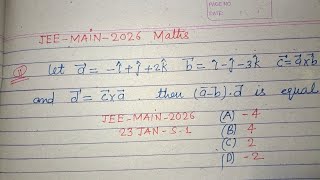 PAGE NO
JEE-MAIN-2026 Maths
① let a⃗ = -î+ĵ+2k̂ b⃗ = î-ĵ-3k̂ c⃗ = a⃗×b⃗
and d⃗ = c⃗×a⃗. then (a⃗-b⃗)·d⃗ is equal
JEE-MAIN-2026 (A) -4
23 JAN-S-1 (B) 4
(C) 2
(D) -2